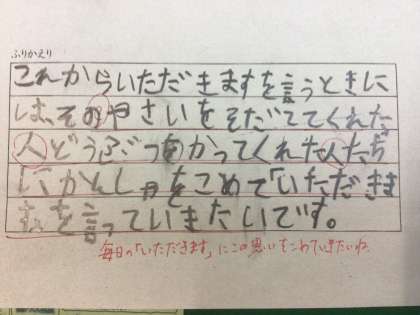 ふりかえり
これからいただきますを言うときに
は、そのやさいをそだててくれた
人どうぶつをかってくれた人たち
にかんしゃをこめて「いただきま
す」を言っていきたいです。
毎日の「いただきます」にこの思いをこめていきたいね